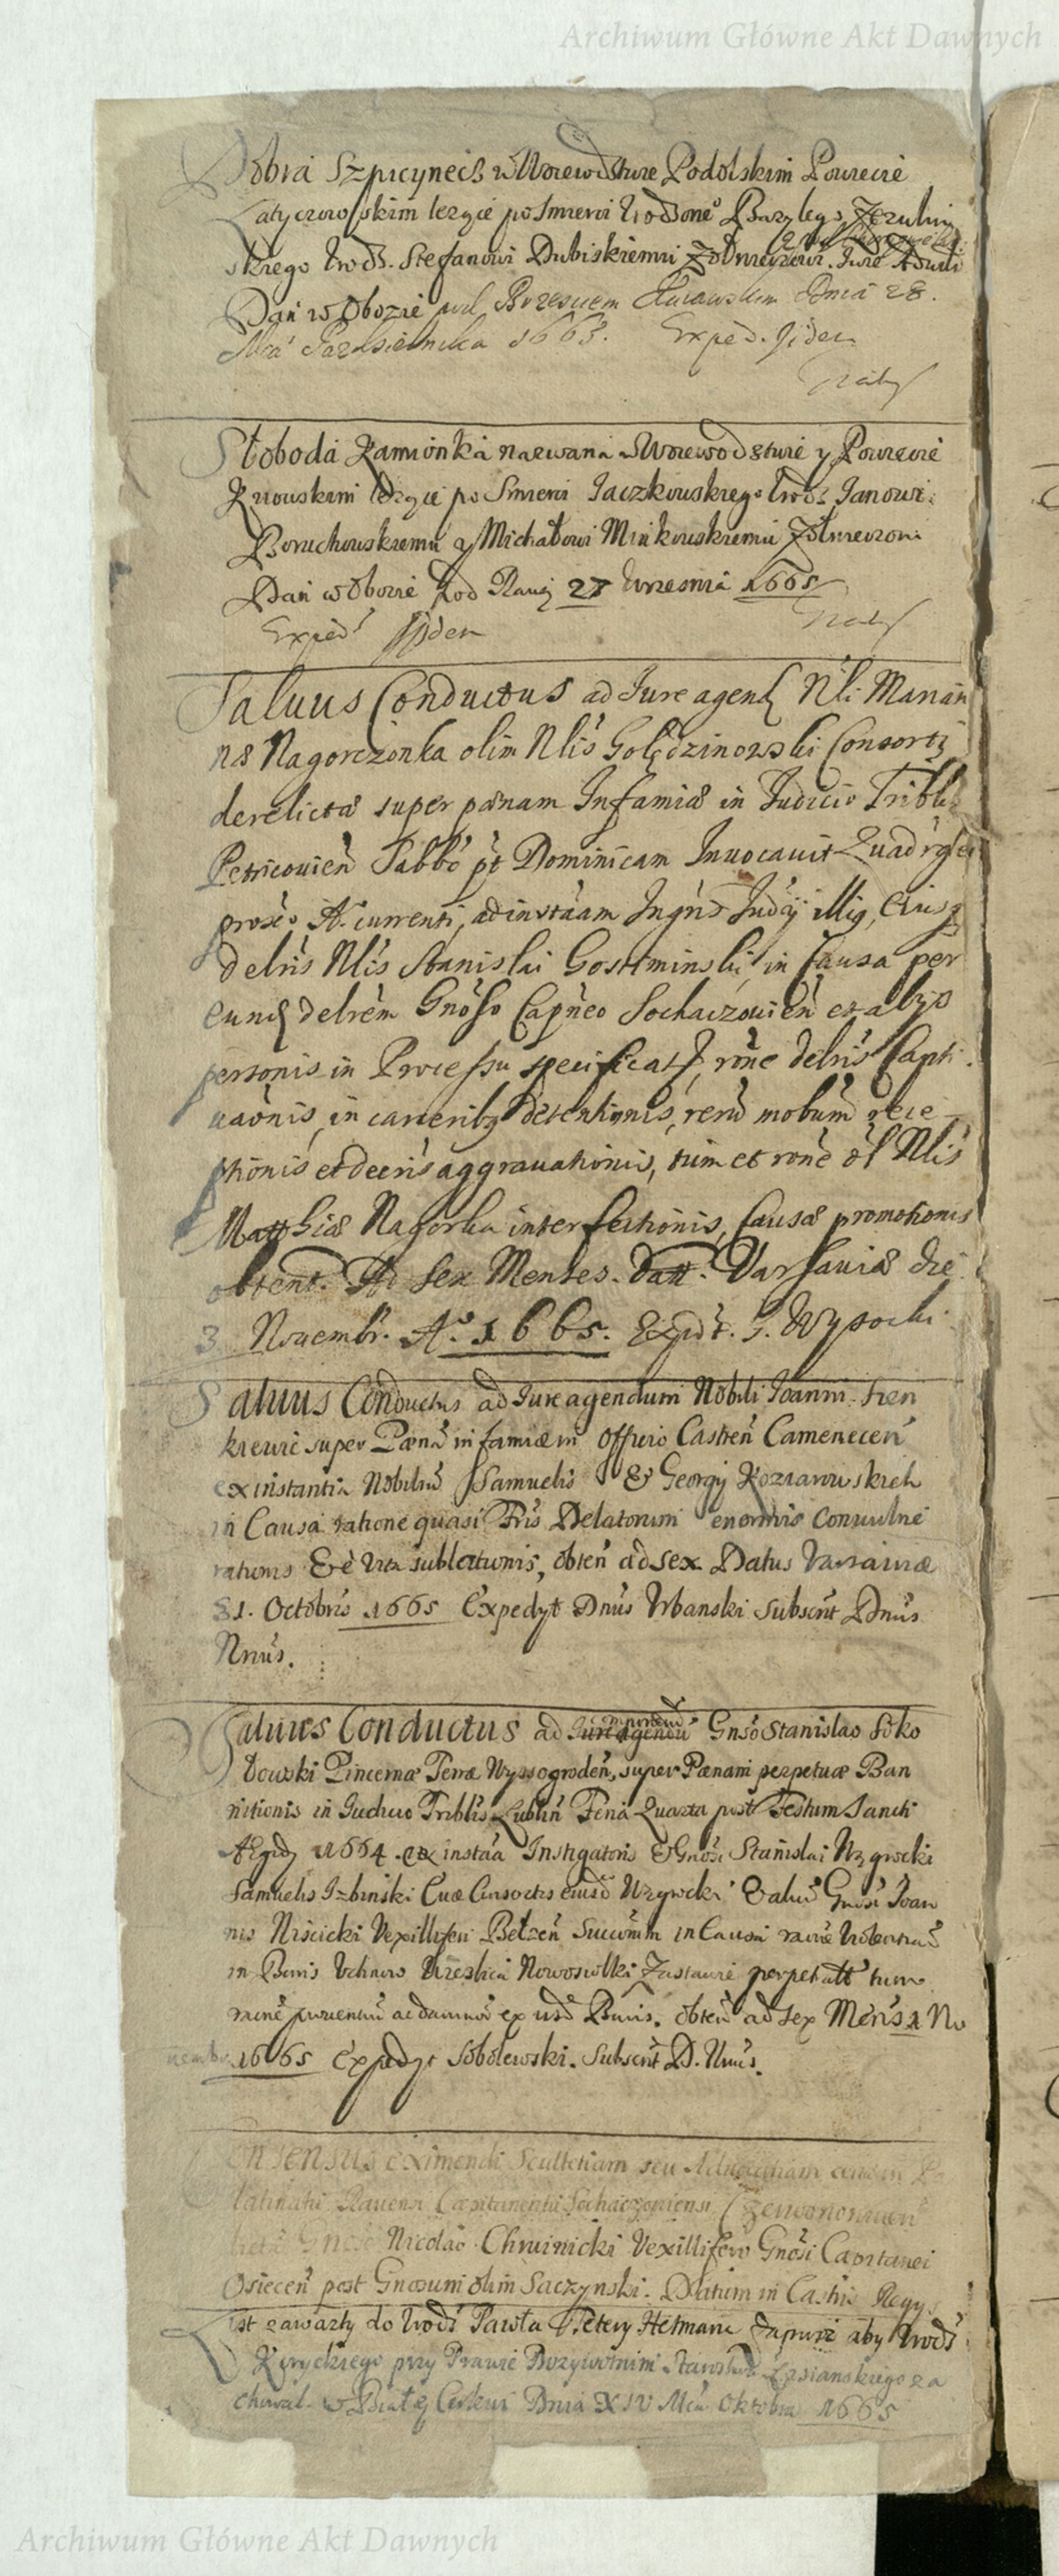 Archiwum Główne Akt Dawnych
Dobra Szpicynecz w Woiewodztwie Podolskim Powiecie
Latyczowskim lezące po smierci Urodzone° Bazylego
skiego Urodz. Stefanowi Dubiskiemu Zołnierzowi. Iure
Dan w Obozie pod Brzesciem Dnia 28.
Mca Pazdziernika 1663. Exped. Idem
Słoboda Kamionka nazwana w Woiewodztwie y Powiecie
Kiiowskim lezące po Smierci Iaczkowskiego Urodz. Ianowi
Boruchowskiemu y Michałowi Minkowskiemu Zołnierzom
Dan w Obozie pod Rawą 27 Wrzesnia 1665
Exped Idem
Saluus Conductus ad Iure agend Nli Marian
næ Nagorczonka olim Nlis Golędzinowski Consorti
derelictæ super pænam Infamiæ in Iudicio Triblis
Petricouien Sabbo pt Dominicam Inuocauit Quadrgsi
proxo Ao currenti, ad instãam Ingris Iudij illig, Eiusq
delris Nlis Stanislai Gostminski, in Causa per
eund delrem Gnoso Capneo Sochaczouien et alys
personis in Processu specificat, rone delris Capti
uaonis, in carceribq detentionis, reru mobum rece
ptionis et decris aggrauationis, tum et rone ol Nlis
Matthiæ Nagorka interfectionis, Causæ promotionis
obtent. Ad Sex Menses. Datt. Varsauiæ die
3 Nouembr. Ao. 1665. Expdt. G. Wysocki
Saluus Conductus ad Iure agendum Nobili Ioanni Hren
kiewic super Pæna infamiæ in Officio Castren Camenecen
ex instantia Nobiliu Samuelis & Georgij Koziarowskich
in Causa ratione quasi Fris Delatorum enormis Conuulne
rationis & è vita sublationis, obten ad sex Datus Varsauiæ
31. Octobris 1665 Expedyt Dnus Urbanski Subscrit Dnus
Nrius.
Saluus Conductus ad Iure agendu Gnso Stanislao Soko
łowski Pincernæ Terræ Wyssogroden, super Pænam perpetuæ Ban
nitionis in Iudicio Triblis Lublin Feria Quarta post Festum Sancti
Ægidij 1664. ex instãa Instigatoris & Gnosi Stanislai Uzywcki
Samuelis Izbinski Euæ Consortis eiusd Uzywcki & aliu Gnosi Ioan
nis Niscicki Vexilliferi Bełzen Succam in Causa raone
in Bonis Uchnow Nowosiołki Zastawie perpetatt tum
raone prouentu ac damnor ex ijsd Bonis. Obten ad Sex Menses 2 No
uembr 1665 Expedyt Sobolewski. Subscrit D. Nrius.
Consensus eximendi Scultetiam seu Aduocatiam
latinatu Rauen Capitaneatu Sochaczouiensi
Gnoso Nicolao Chwinicki Vexillifero Gnosi Capitanei
Osiecen post Gnosum olim Saczynski. Datum in Castris Regys
List zawarty do Urodz Pawła Petery Hetmana aby Urodz
Kiryckiego przy Prawie Dozywotnim Starostwa za
chował. w Białey Cerkwi Dnia XIV Mca Oktobra 1665
Archiwum Główne Akt Dawnych